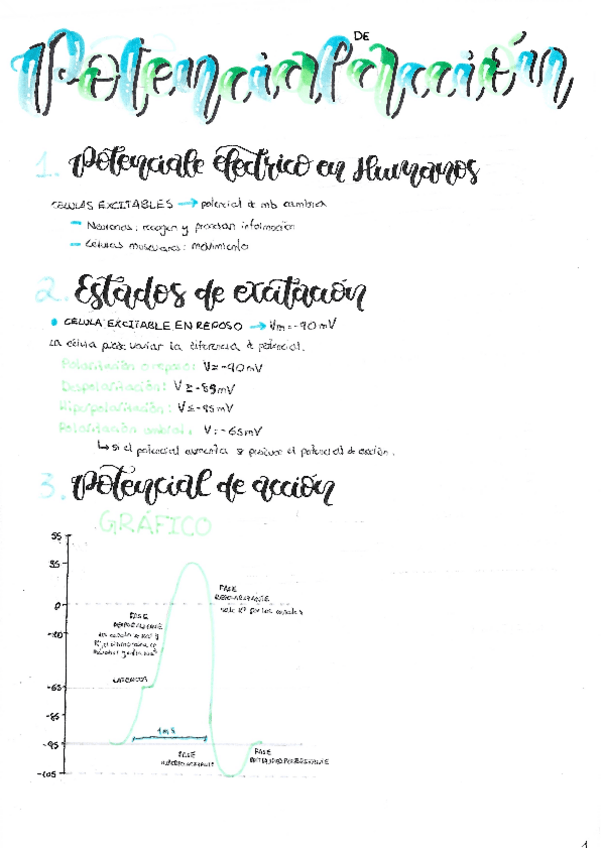 Potencial DE acción
1. Potenciale eléctrico en Humanos
CÉLULAS EXCITABLES → potencial de mb cambia
- Neuronas: recogen y procesan información
- Células musculares: movimiento
2. Estados de excitación
• CÉLULA EXCITABLE EN REPOSO → Vm = -90 mV
La célula puede variar la diferencia de potencial.
Polarización o reposo: V = -90 mV
Despolarización: V ≥ -85 mV
Hiperpolarización: V ≤ -95 mV
Polarización umbral: V = -65 mV
↳ si el potencial aumenta se produce el potencial de acción.
3. Potencial de acción
GRÁFICO
55
35
FASE
REPOLARIZANTE
sale K+ por los canales
0
FASE
DESPOLARIZANTE
LATENCIA
-65
-85
1 ms
-95
FASE
FASE
-105
1